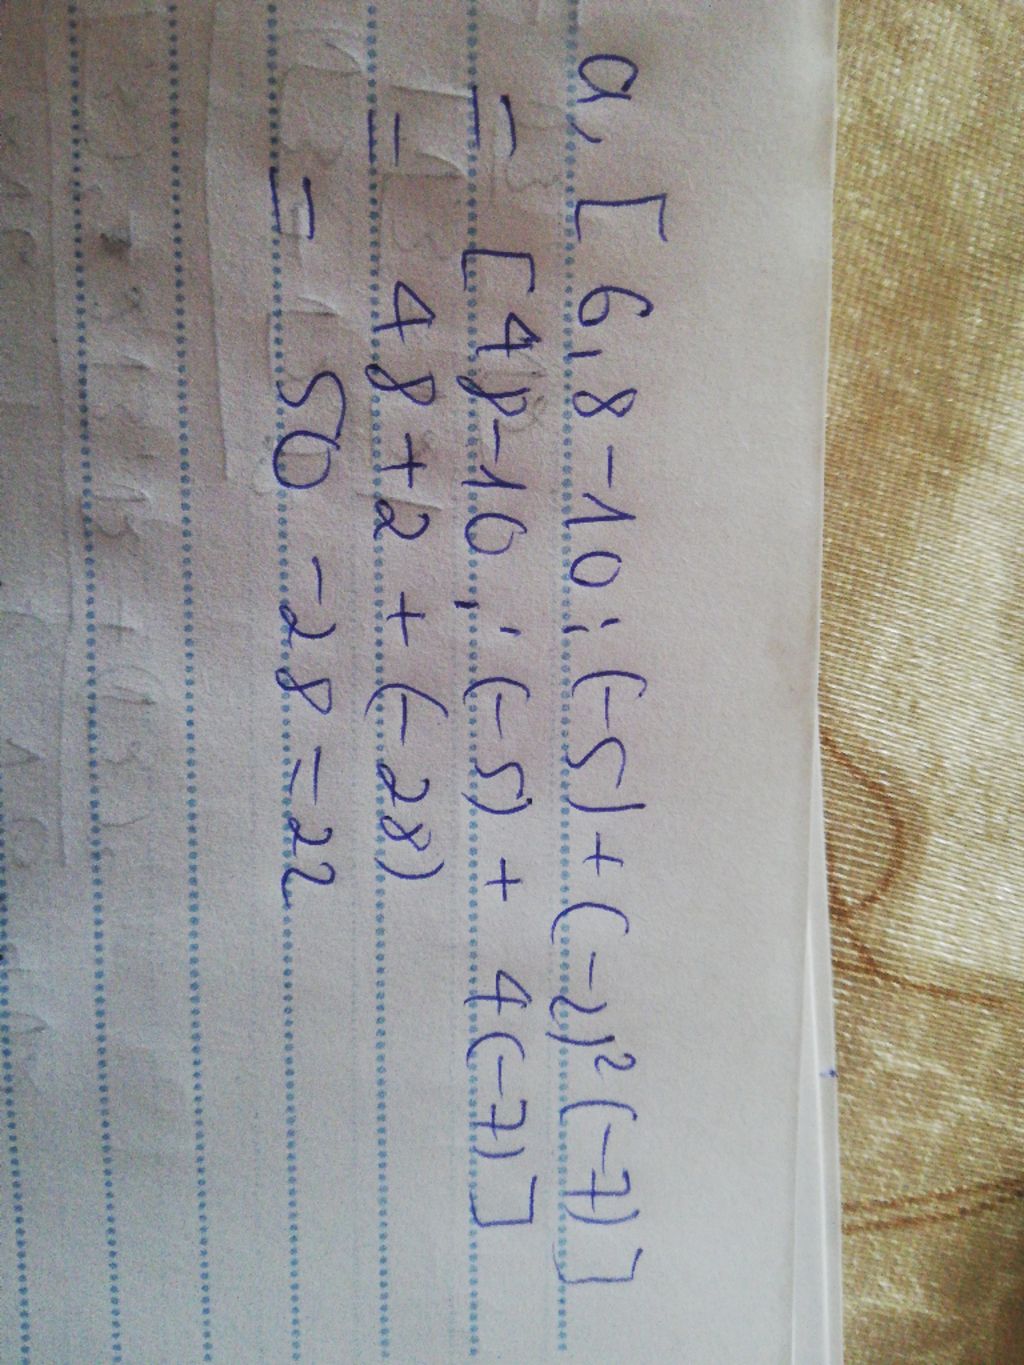 a, [6.8-10:(-5)+(-2)²(-7)]
= [48-10:(-5)+4(-7)]
= 48+2+(-28)
= 50-28=22